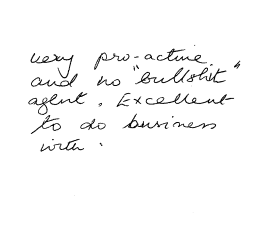 very pro-active
and no "bullshit"
agent. Excellent
to do business
with.